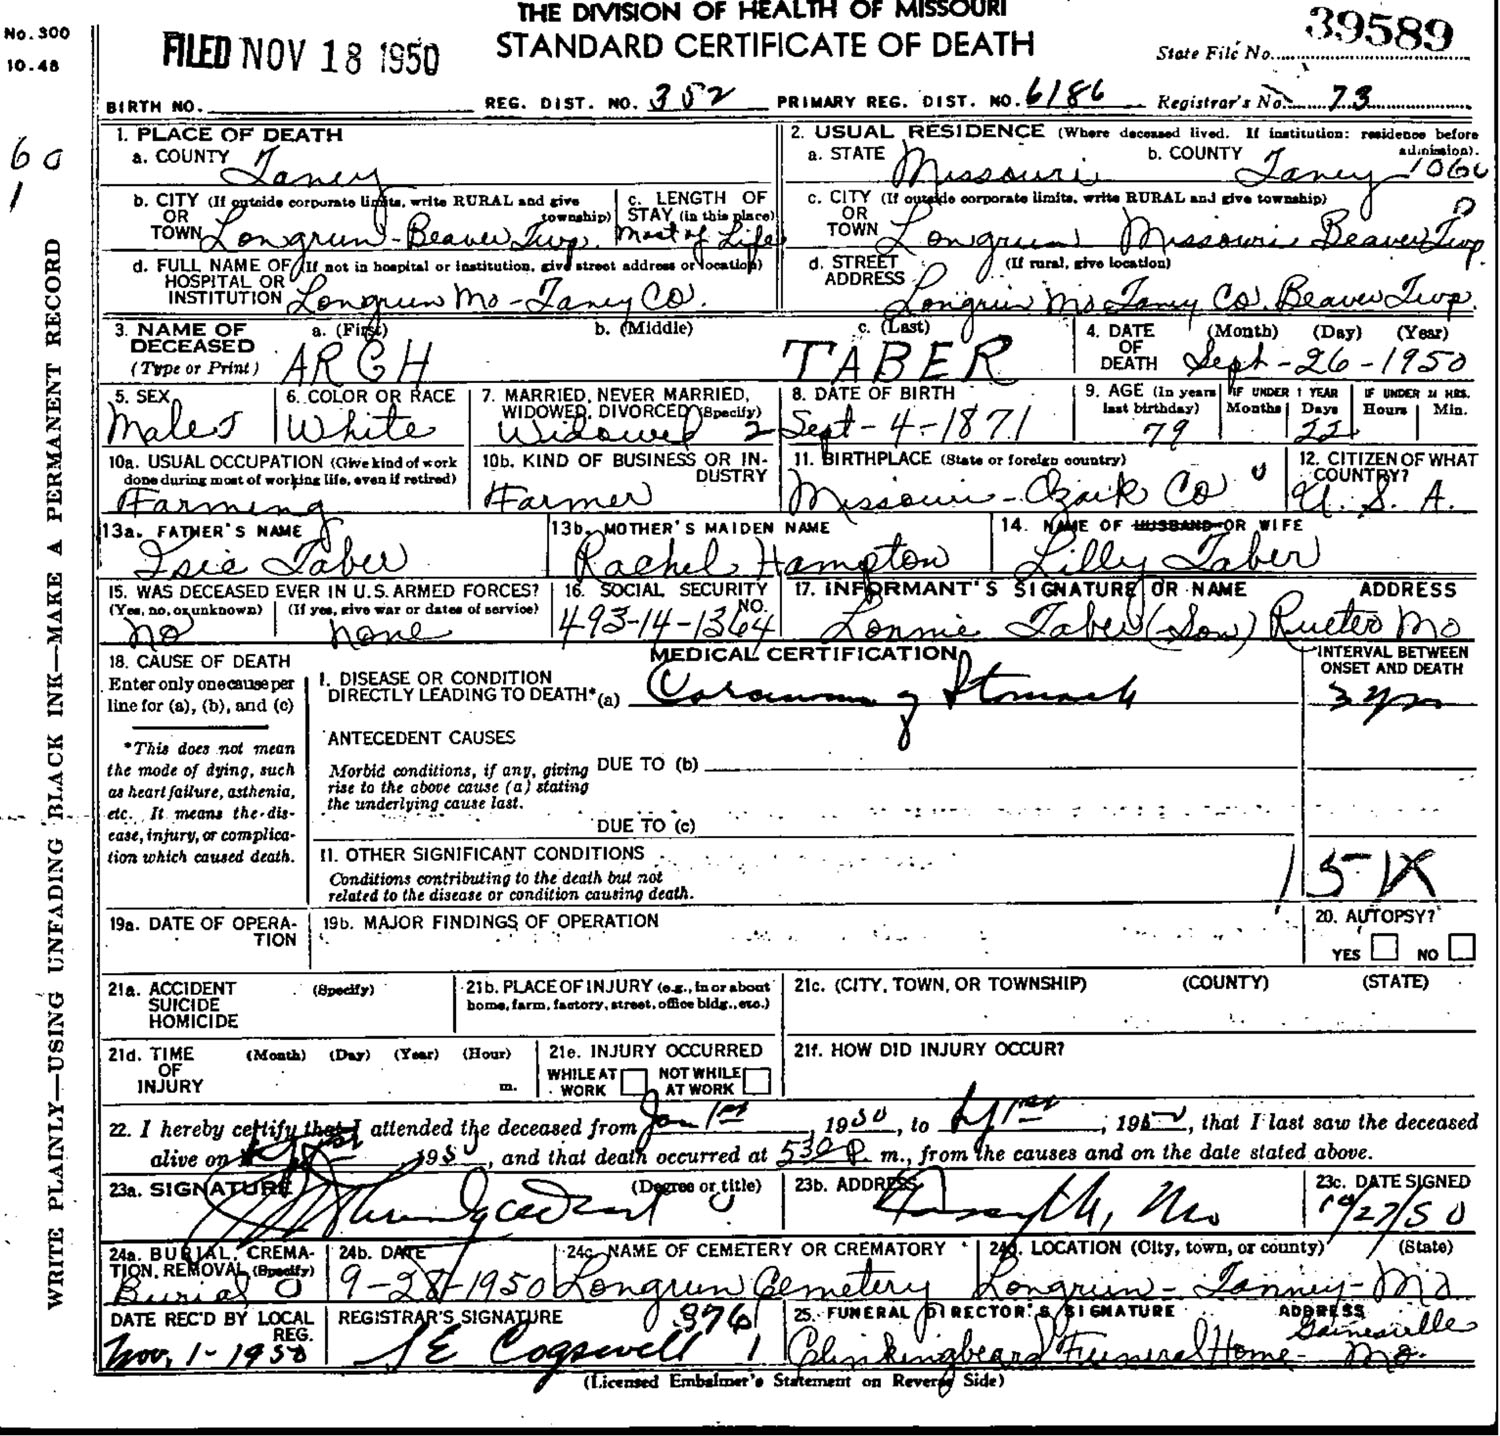 THE DIVISION OF HEALTH OF MISSOURI
STANDARD CERTIFICATE OF DEATH
No. 300
10-48
FILED NOV 18 1950
State File No. 39589
BIRTH NO. REG. DIST. NO. 352 PRIMARY REG. DIST. NO. 6186 Registrar's No. 73
60
1
WRITE PLAINLY—USING UNFADING BLACK INK—MAKE A PERMANENT RECORD
1. PLACE OF DEATH
a. COUNTY Taney
2. USUAL RESIDENCE (Where deceased lived. If institution: residence before admission).
a. STATE Missouri b. COUNTY Taney 1060
b. CITY (If outside corporate limits, write RURAL and give township) OR TOWN Longrun-Beaver Twp.
c. LENGTH OF STAY (in this place) Most of Life
c. CITY (If outside corporate limits, write RURAL and give township) OR TOWN Longrun Missouri Beaver Twp.
d. FULL NAME OF (If not in hospital or institution, give street address or location) HOSPITAL OR INSTITUTION Longrun Mo-Taney Co.
d. STREET ADDRESS (If rural, give location) Longrun Mo Taney Co. Beaver Twp.
3. NAME OF DECEASED (Type or Print) a. (First) b. (Middle) c. (Last)
ARCH TABER
4. DATE OF DEATH (Month) (Day) (Year) Sept-26-1950
5. SEX Male
6. COLOR OR RACE White
7. MARRIED, NEVER MARRIED, WIDOWED, DIVORCED (Specify) Widowed 2
8. DATE OF BIRTH Sept-4-1871
9. AGE (In years last birthday) 79 IF UNDER 1 YEAR Months Days 22 IF UNDER 24 HRS. Hours Min.
10a. USUAL OCCUPATION (Give kind of work done during most of working life, even if retired) Farming
10b. KIND OF BUSINESS OR INDUSTRY Farmer
11. BIRTHPLACE (State or foreign country) Missouri-Ozark Co
12. CITIZEN OF WHAT COUNTRY? U.S.A.
13a. FATHER'S NAME Isie Taber
13b. MOTHER'S MAIDEN NAME Rachel Hampton
14. NAME OF HUSBAND OR WIFE Lilly Taber
15. WAS DECEASED EVER IN U.S. ARMED FORCES? (Yes, no, or unknown) (If yes, give war or dates of service)
no none
16. SOCIAL SECURITY NO. 493-14-1364
17. INFORMANT'S SIGNATURE OR NAME ADDRESS
Lonnie Taber (Son) Rueter Mo
18. CAUSE OF DEATH
Enter only one cause per line for (a), (b), and (c)
*This does not mean the mode of dying, such as heart failure, asthenia, etc. It means the disease, injury, or complication which caused death.
MEDICAL CERTIFICATION
INTERVAL BETWEEN ONSET AND DEATH
I. DISEASE OR CONDITION DIRECTLY LEADING TO DEATH* (a) of Stomach 3 yrs
ANTECEDENT CAUSES
Morbid conditions, if any, giving rise to the above cause (a) stating the underlying cause last.
DUE TO (b)
DUE TO (c)
II. OTHER SIGNIFICANT CONDITIONS
Conditions contributing to the death but not related to the disease or condition causing death.
151X
19a. DATE OF OPERATION
19b. MAJOR FINDINGS OF OPERATION
20. AUTOPSY? YES NO
21a. ACCIDENT SUICIDE HOMICIDE (Specify)
21b. PLACE OF INJURY (e.g., in or about home, farm, factory, street, office bldg., etc.)
21c. (CITY, TOWN, OR TOWNSHIP) (COUNTY) (STATE)
21d. TIME OF INJURY (Month) (Day) (Year) (Hour) m.
21e. INJURY OCCURRED WHILE AT WORK NOT WHILE AT WORK
21f. HOW DID INJURY OCCUR?
22. I hereby certify that I attended the deceased from Jan 1st, 1950, to 1950, that I last saw the deceased
alive on 1950, and that death occurred at 530 P m., from the causes and on the date stated above.
23a. SIGNATURE (Degree or title)
23b. ADDRESS Forsyth, Mo
23c. DATE SIGNED 10/27/50
24a. BURIAL, CREMATION, REMOVAL (Specify) Burial
24b. DATE 9-28-1950
24c. NAME OF CEMETERY OR CREMATORY Longrun Cemetery
24d. LOCATION (City, town, or county) (State) Longrun-Tanney-Mo
DATE REC'D BY LOCAL REG. Nov. 1-1950
REGISTRAR'S SIGNATURE 376
S E Cogswell 1
25. FUNERAL DIRECTOR'S SIGNATURE ADDRESS
Clinkingbeard Funeral Home- Gainesville Mo.
(Licensed Embalmer's Statement on Reverse Side)